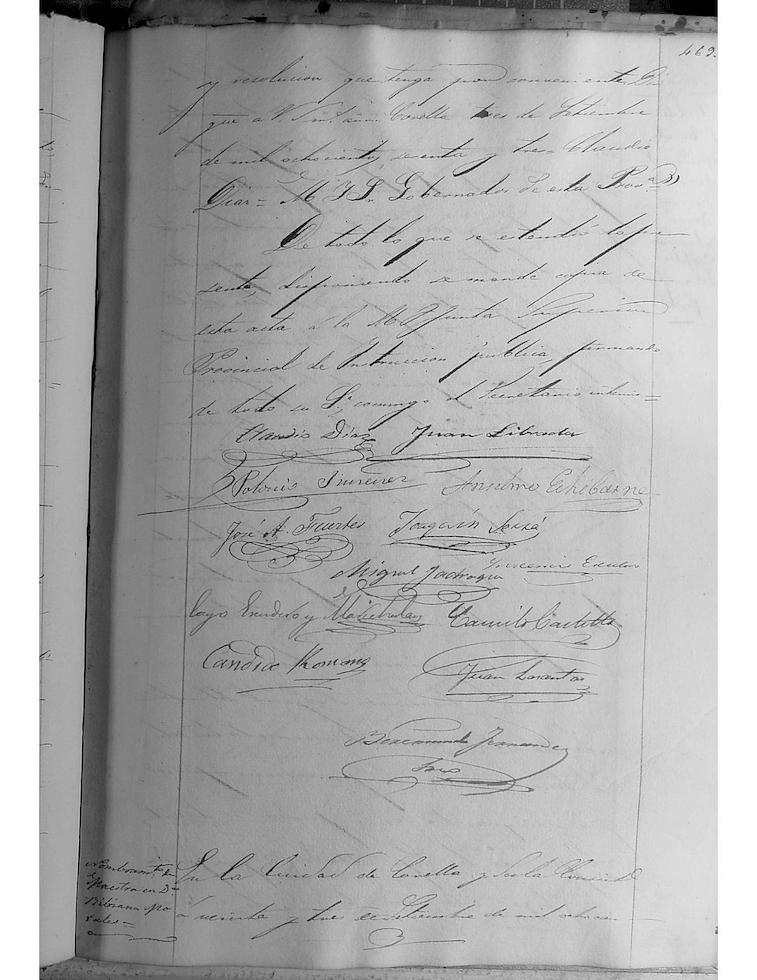 469.
y resolucion que tenga por conveniente Di
que a V. S. m. añ. Corella tres de Setiembre
de mil ochocientos sesenta y tres = Claudio
Diaz = M. I. Sr. Gobernador de esta Prova
De todo lo que se estendió la pre
sente, disponiendo se mande copia de
esta acta á la M. I. Junta Superior
Provincial de Instruccion publica, firmando
de todo su Sª, conmigo el Secretario interino =
Claudio Diaz Juan Librada
Polonio Jimenez Anselmo Echebarne
José A. Fuertes Joaquin
Miguel Jadraque Inocencio Escudero
Cayo Escudero y Camilo Castella
Candido Romano
Juan Lorantos
Beremundo Fernandez
Srio
Nombramto de
Maestra en Dª
Bibiana Mo
rales =
En la Ciudad de Corella y Sala Consist
á veinte y tres de Setiembre de mil ochocien